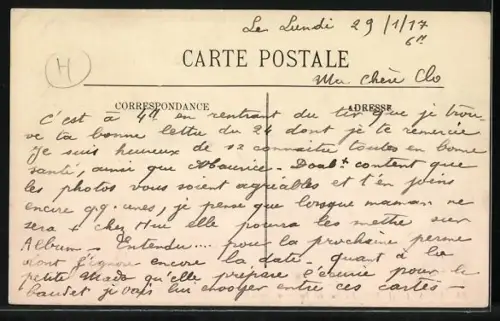 Le Lundi 29/1/17
6h
CARTE POSTALE
H
Ma Chère Clo
CORRESPONDANCE
ADRESSE
C'est à 4h en rentrant du tir que je trou-
ve ta bonne lettre du 24 dont je te remercie
Je suis heureux de connaitre toutes en bonne
santé, ainsi que Maurice - content que
les photos vous soient agréables et t'en joins
encore qq. unes, je pense que lorsque maman ne
sera + chez elle pourra les mettre sur
Album - Entendu.... pour la prochaine perme
dont j'ignore encore la date - quant à la
petite Mado qu'elle prépare l'écurie pour le
baudet je vais lui envoyer entre ces cartes -